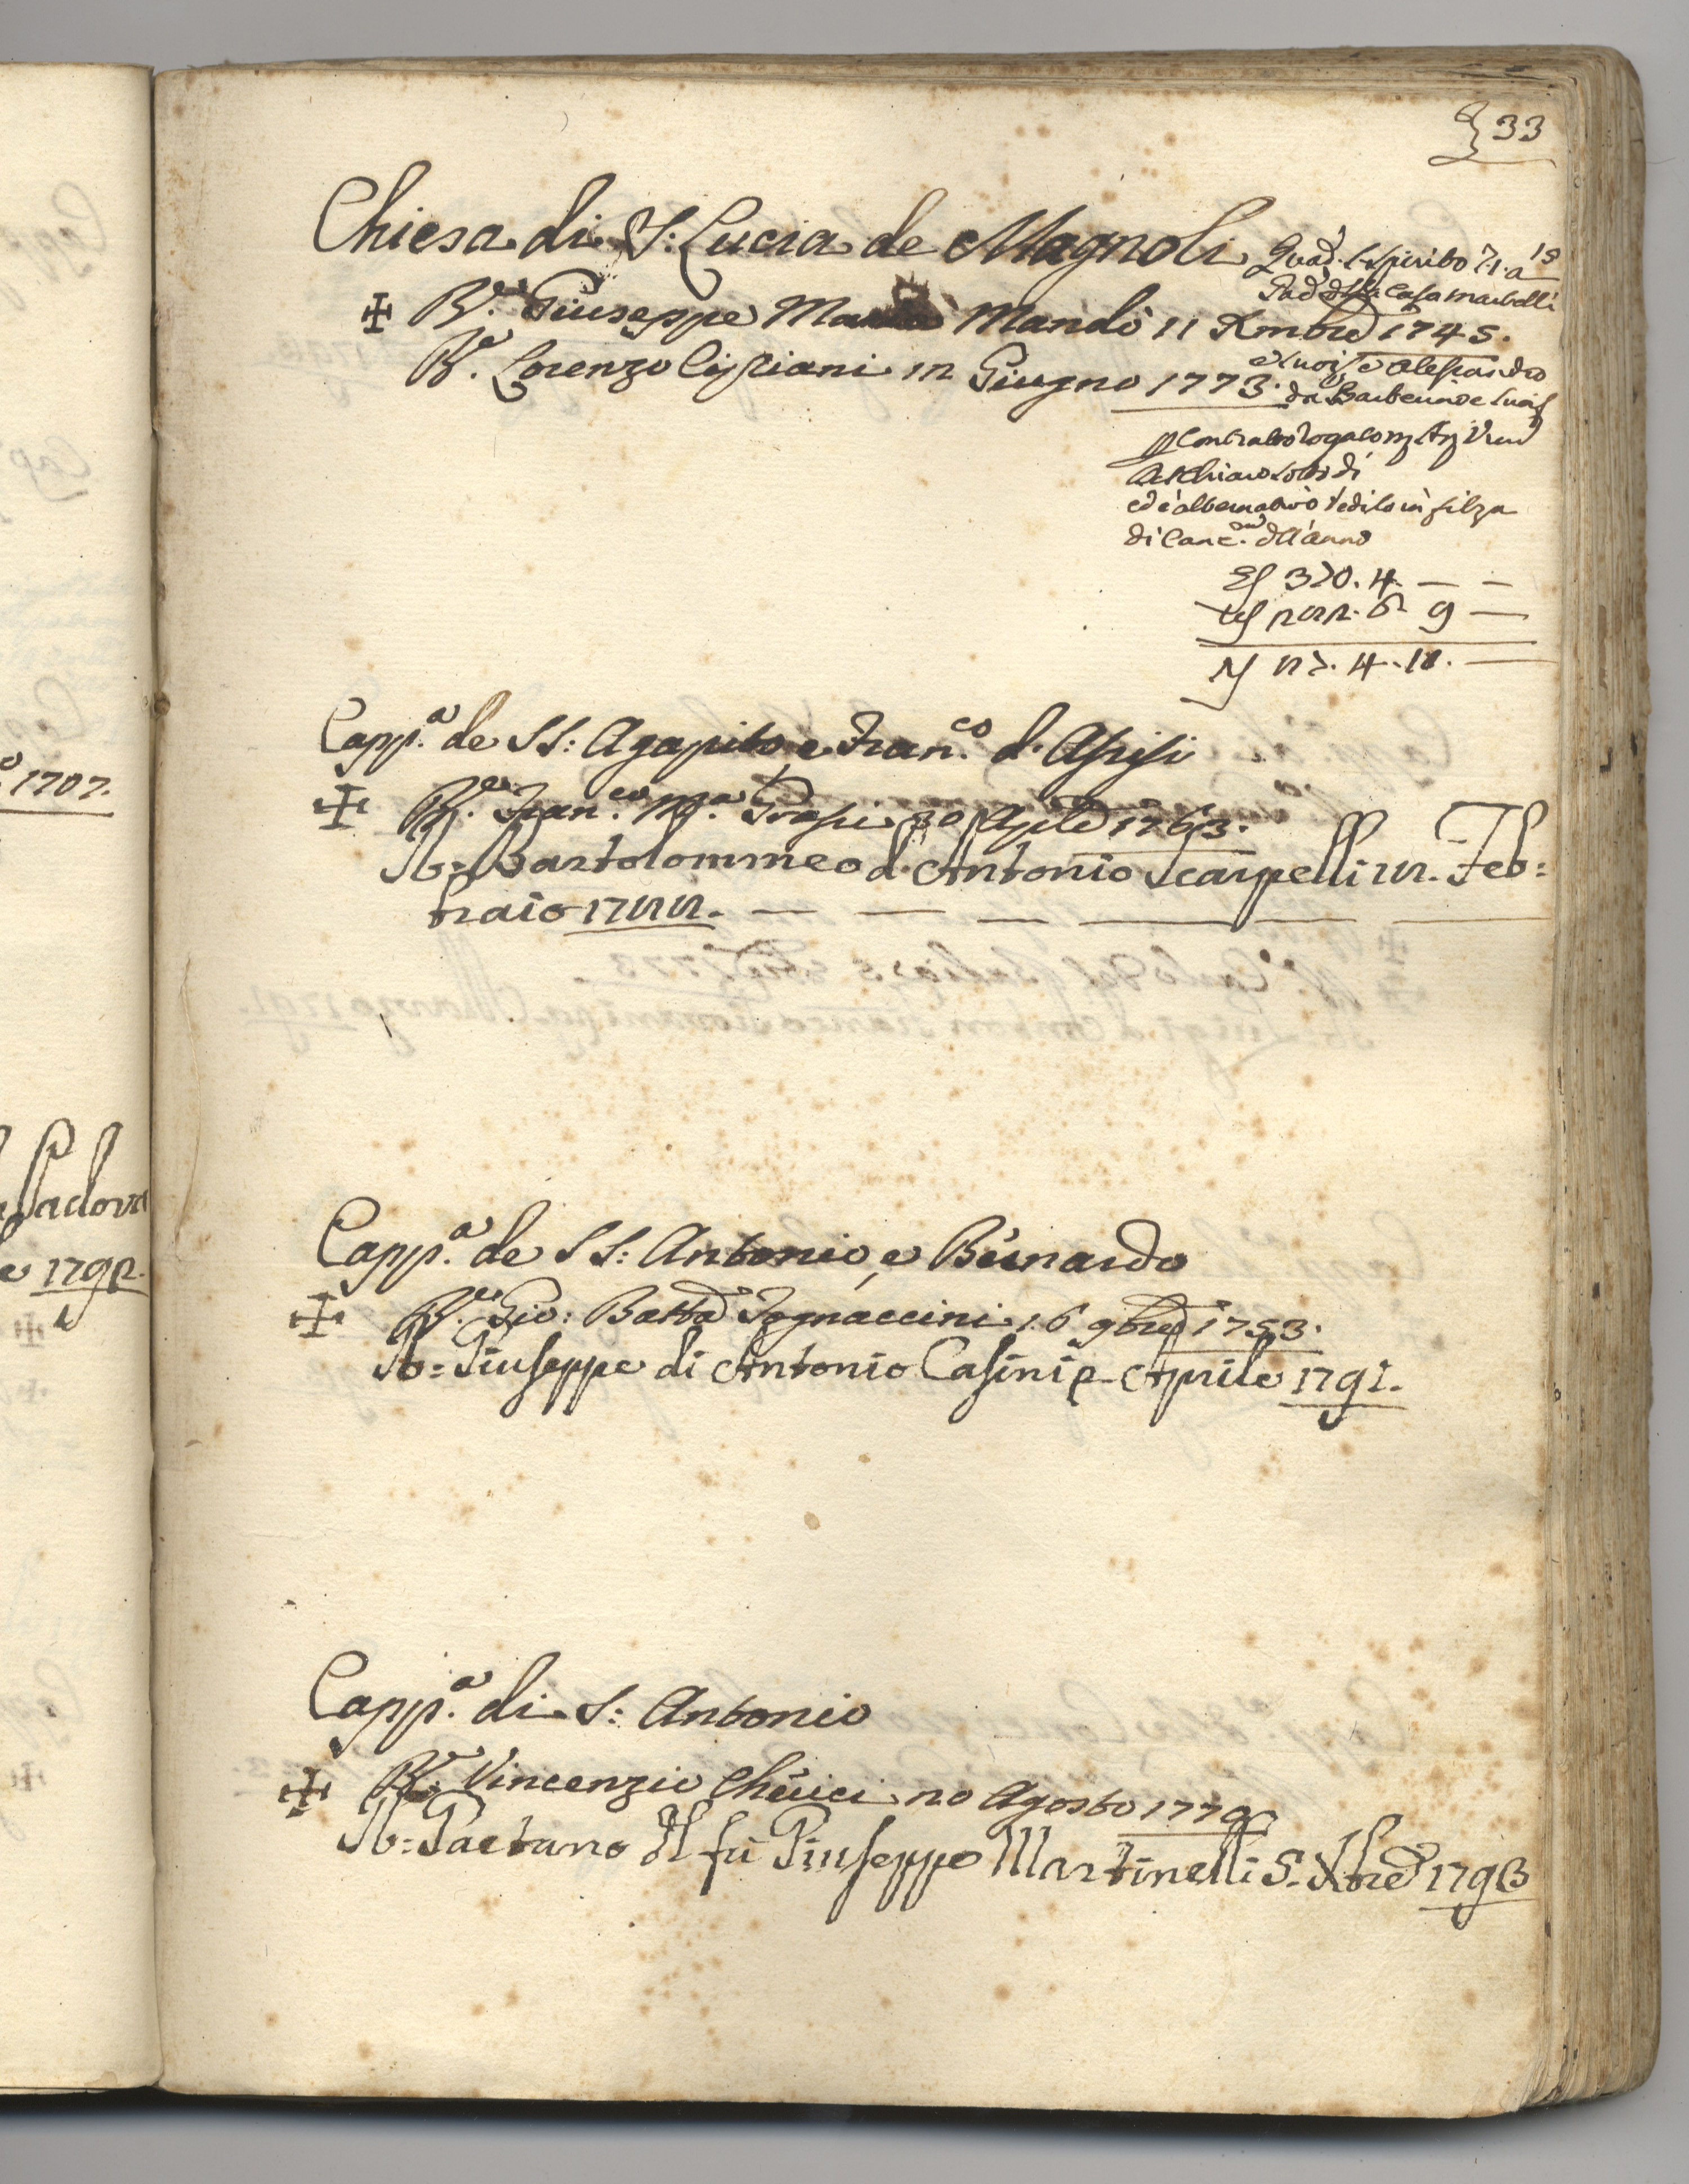 33
Chiesa di S: Lucia de Magnoli
Quad. S. Spirito 71. a 18
Pad. della Casa Martelli
Re. Giuseppe Maria Mandò 11 Xmbre 1745.
Re. Lorenzo Cipriani in Giugno 1773.
e suoi e Alessandro
da Barberino e suoi
contratto rogato
ed è alternativo vedilo in filza
di Canc. dll' anno
370. 4. — —
6 9 —
4. 18. —
Capp.a de SS: Agapito e Fran.co d. Assisi
Re. Fran.co Ma. Grassi 30 Aple 1763.
Bartolommeo d. Antonio Scarpelli 12. Feb=
braio 1788.
Capp.a de SS: Antonio, e Bernardo
Re. Gio: Batta Fognaccini 16 9bre 1753.
Giuseppe di Antonio Casini 2. Aprile 1791.
Capp.a di S: Antonio
Re. Vincenzio Cherici 20 Agosto 1779
Gaetano dl fù Giuseppe Martinelli 5. Xbre 1793
1707.
Padova
e 1792.